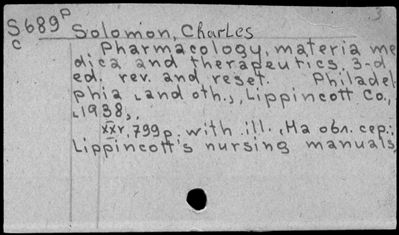 S689p Solomon, Charles 3
c
Pharmacology, materia me
dica and therapeutics. 3-d
ed. rev. and reset. Philadel
phia, and oth., Lippincott Co.,
1938,.
XXV, 799 p. with ill. На обл. сер.:
Lippincott's nursing manuals,